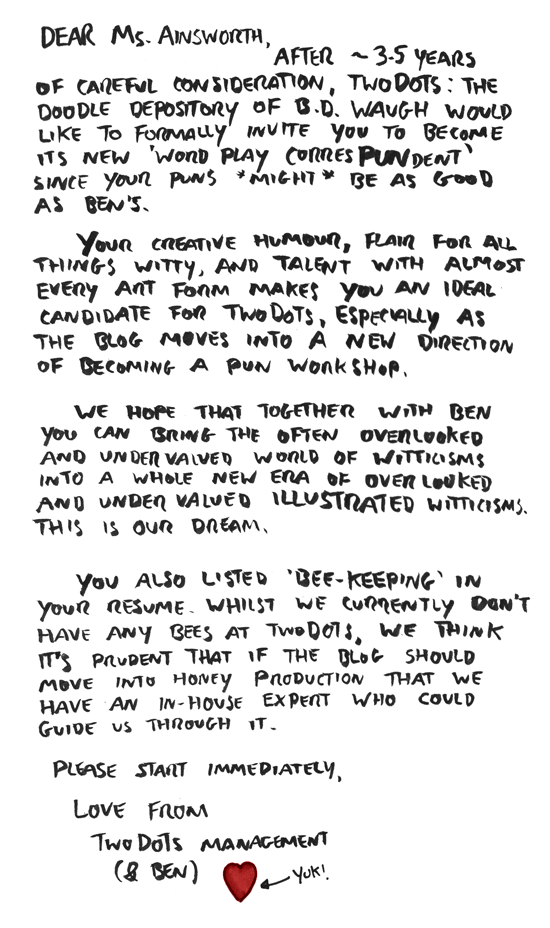 DEAR Ms. AINSWORTH,
AFTER ~ 3.5 YEARS
OF CAREFUL CONSIDERATION, TWODOTS: THE
DOODLE DEPOSITORY OF B.D. WAUGH WOULD
LIKE TO FORMALLY INVITE YOU TO BECOME
ITS NEW 'WORD PLAY CORRESPUNDENT'
SINCE YOUR PUNS *MIGHT* BE AS GOOD
AS BEN'S.
YOUR CREATIVE HUMOUR, FLAIR FOR ALL
THINGS WITTY, AND TALENT WITH ALMOST
EVERY ART FORM MAKES YOU AN IDEAL
CANDIDATE FOR TWODOTS, ESPECIALLY AS
THE BLOG MOVES INTO A NEW DIRECTION
OF BECOMING A PUN WORKSHOP.
WE HOPE THAT TOGETHER WITH BEN
YOU CAN BRING THE OFTEN OVERLOOKED
AND UNDERVALUED WORLD OF WITTICISMS
INTO A WHOLE NEW ERA OF OVERLOOKED
AND UNDERVALUED ILLUSTRATED WITTICISMS.
THIS IS OUR DREAM.
YOU ALSO LISTED 'BEE-KEEPING' IN
YOUR RESUME. WHILST WE CURRENTLY DON'T
HAVE ANY BEES AT TWODOTS, WE THINK
IT'S PRUDENT THAT IF THE BLOG SHOULD
MOVE INTO HONEY PRODUCTION THAT WE
HAVE AN IN-HOUSE EXPERT WHO COULD
GUIDE US THROUGH IT.
PLEASE START IMMEDIATELY,
LOVE FROM
TWODOTS MANAGEMENT
(& BEN)
YUK!